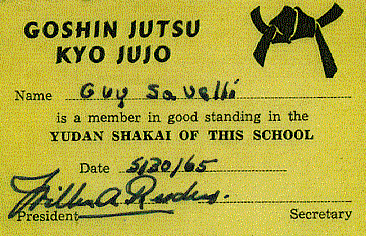 GOSHIN JUTSU
KYO JUJO
Name Guy Savelli
is a member in good standing in the
YUDAN SHAKAI OF THIS SCHOOL
Date 5/30/65
President Secretary